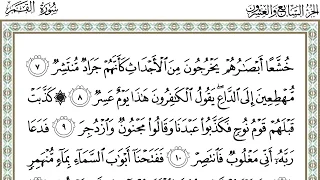 الجزء السابع والعشرون
سورة القمر
خُشَّعًا أَبْصَٰرُهُمْ يَخْرُجُونَ مِنَ ٱلْأَجْدَاثِ كَأَنَّهُمْ جَرَادٌ مُّنتَشِرٌ ٧
مُّهْطِعِينَ إِلَى ٱلدَّاعِ يَقُولُ ٱلْكَٰفِرُونَ هَٰذَا يَوْمٌ عَسِرٌ ٨ ۞ كَذَّبَتْ
قَبْلَهُمْ قَوْمُ نُوحٍ فَكَذَّبُوا۟ عَبْدَنَا وَقَالُوا۟ مَجْنُونٌ وَٱزْدُجِرَ ٩ فَدَعَا
رَبَّهُۥٓ أَنِّى مَغْلُوبٌ فَٱنتَصِرْ ١٠ فَفَتَحْنَآ أَبْوَٰبَ ٱلسَّمَآءِ بِمَآءٍ مُّنْهَمِرٍ